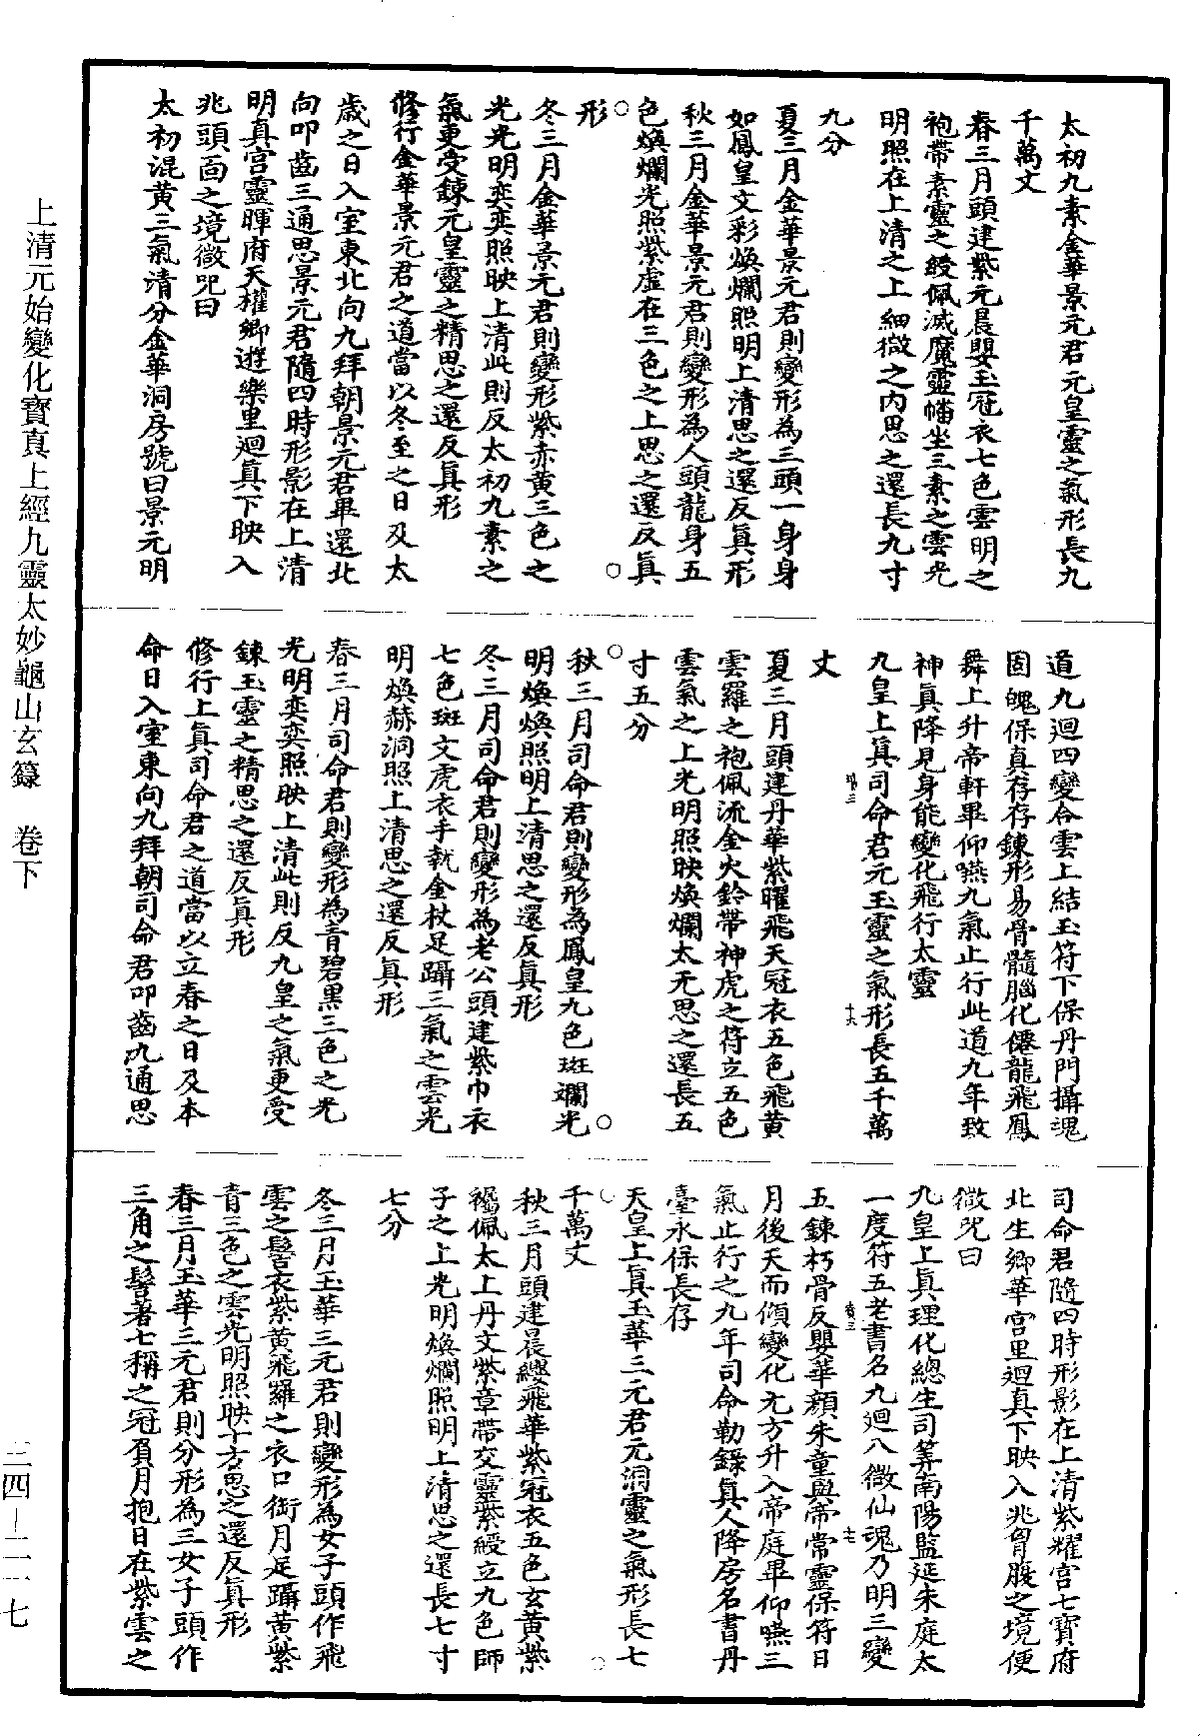 太初九素金華景元君元皇靈之氣形長九
千萬丈
春三月頭建紫元晨嬰玉冠衣七色雲明之
袍帶素靈之綬佩滅魔靈幡坐三素之雲光
明照在上清之上細微之内思之還長九寸
九分
夏三月金華景元君則變形為三頭一身身
如鳳皇文彩煥爛照明上清思之還反真形
秋三月金華景元君則變形為人頭龍身五
色煥爛光照紫虛在三色之上思之還反真
形
冬三月金華景元君則變形紫赤黃三色之
光光明奕奕照映上清此則反太初九素之
氣更受鍊元皇靈之精思之還反真形
修行金華景元君之道當以冬至之日及太
歲之日入室東北向九拜朝景元君畢還北
向叩齒三通思景元君隨四時形影在上清
明真宮靈暉府天權鄉遊樂里迴真下映入
兆頭面之境微咒曰
太初混黃三氣清分金華洞房號曰景元明
道九迴四變合雲上結玉符下保丹門攝魂
固魄保真存存鍊形易骨髓腦化僊龍飛鳳
舞上升帝軒畢仰嚥九氣止行此道九年致
神真降見身能變化飛行太靈
九皇上真司命君元玉靈之氣形長五千萬
丈
夏三月頭建丹華紫曜飛天冠衣五色飛黃
雲羅之袍佩流金火鈴帶神虎之符立五色
雲氣之上光明照映煥爛太无思之還長五
寸五分
秋三月司命君則變形為鳳皇九色斑斕光
明煥煥照明上清思之還反真形
冬三月司命君則變形為老公頭建紫巾衣
七色斑文虎衣手執金杖足躡三氣之雲光
明煥赫洞照上清思之還反真形
春三月司命君則變形為青碧黑三色之光
光明奕奕照映上清此則反九皇之氣更受
鍊玉靈之精思之還反真形
修行上真司命君之道當以立春之日及本
命日入室東向九拜朝司命君叩齒九通思
司命君隨四時形影在上清紫耀宮七寶府
北生鄉華宮里迴真下映入兆胷腹之境便
微咒曰
九皇上真理化總生司筭南陽監延朱庭太
一度符五老書名九迴八微仙魂乃明三變
五鍊朽骨反嬰華顏朱童與帝常靈保符日
月後天而傾變化无方升入帝庭畢仰嚥三
氣止行之九年司命勒錄真人降房名書丹
臺永保長存
天皇上真玉華三元君元洞靈之氣形長七
千萬丈
秋三月頭建晨纓飛華紫冠衣五色玄黃紫
襹佩太上丹文紫章帶交靈紫綬立九色師
子之上光明煥爛照明上清思之還長七寸
七分
冬三月玉華三元君則變形為女子頭作飛
雲之髻衣紫黃飛羅之衣口銜月足躡黃紫
青三色之雲光明照映十方思之還反真形
春三月玉華三元君則分形為三女子頭作
三角之髻著七稱之冠負月抱日在紫雲之
上清元始變化寶真上經九靈太妙龜山玄籙 卷下
三四—二一七